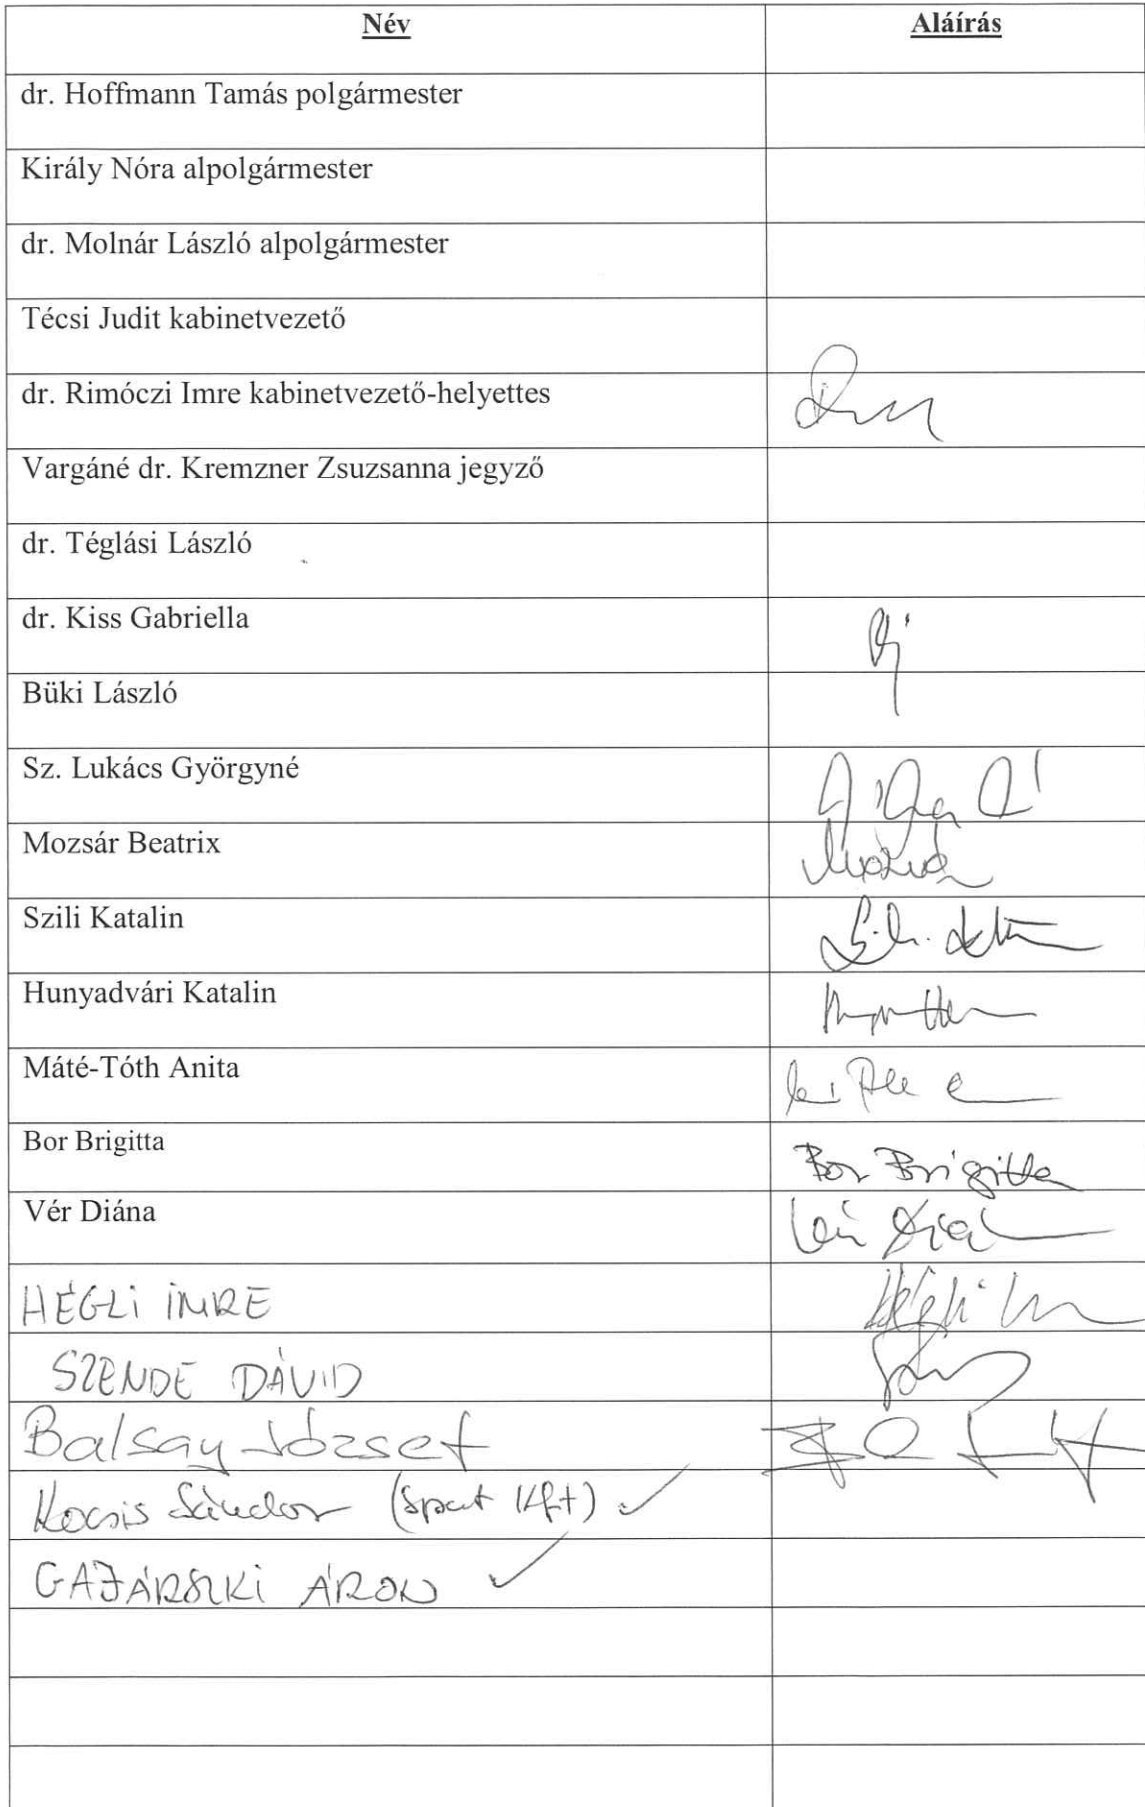 Név Aláírás
dr. Hoffmann Tamás polgármester
Király Nóra alpolgármester
dr. Molnár László alpolgármester
Técsi Judit kabinetvezető
dr. Rimóczi Imre kabinetvezető-helyettes
Vargáné dr. Kremzner Zsuzsanna jegyző
dr. Téglási László
dr. Kiss Gabriella
Büki László
Sz. Lukács Györgyné
Mozsár Beatrix
Szili Katalin
Hunyadvári Katalin
Máté-Tóth Anita
Bor Brigitta Bor Brigitta
Vér Diána
HÉGLI IMRE
SZENDE DÁVID
Balsay József
Kocsis Sándor (Sport Kft) ✓
GAJÁRSZKI ÁRON ✓